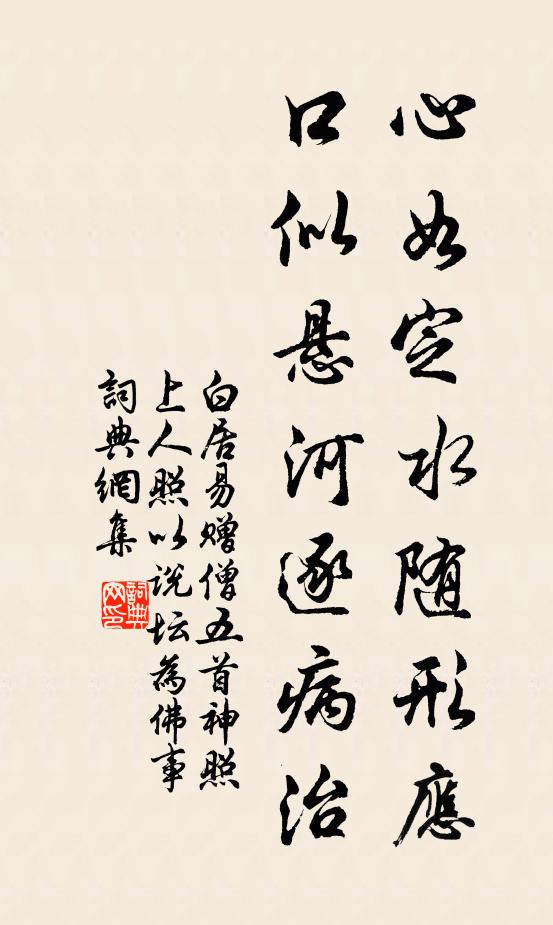 心如定水随形應
口似悬河逐病治
白居易赠僧五首神照
上人照以说坛為佛事
詞典網集
詞典网印